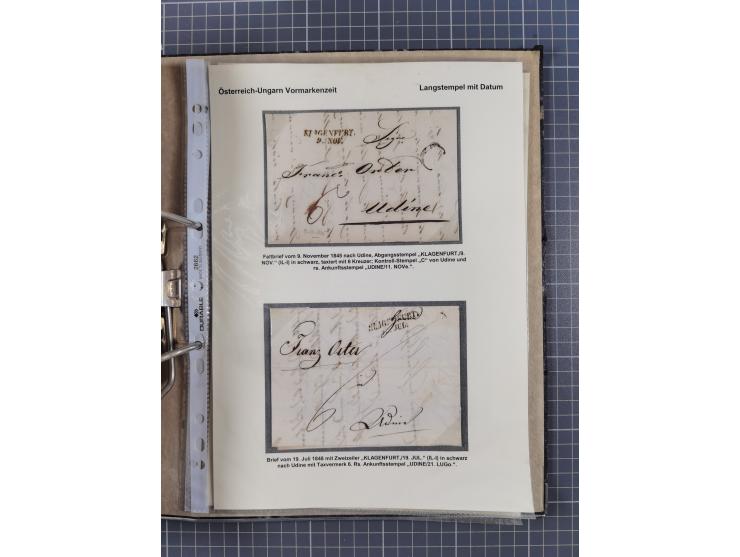 Österreich-Ungarn Vormarkenzeit
Langstempel mit Datum
KLAGENFURT.
9. NOV.
Franc Onter
6
Udine
Faltbrief vom 9. November 1848 nach Udine, Abgangsstempel „KLAGENFURT./9.
NOV.“ (IL-I) in schwarz, taxiert mit 6 Kreuzer; Kontroll-Stempel „C“ von Udine und
rs. Ankunftsstempel „UDINE/11. NOVe.“.
2662
DURABLE
KLAGENFURT.
Franz Oster
6
Udine
Brief vom 19. Juli 1848 mit Zweizeiler „KLAGENFURT./19. JUL.“ (IL-I) in schwarz
nach Udine mit Taxvermerk 6. Rs. Ankunftsstempel „UDINE/21. LUGo.“.